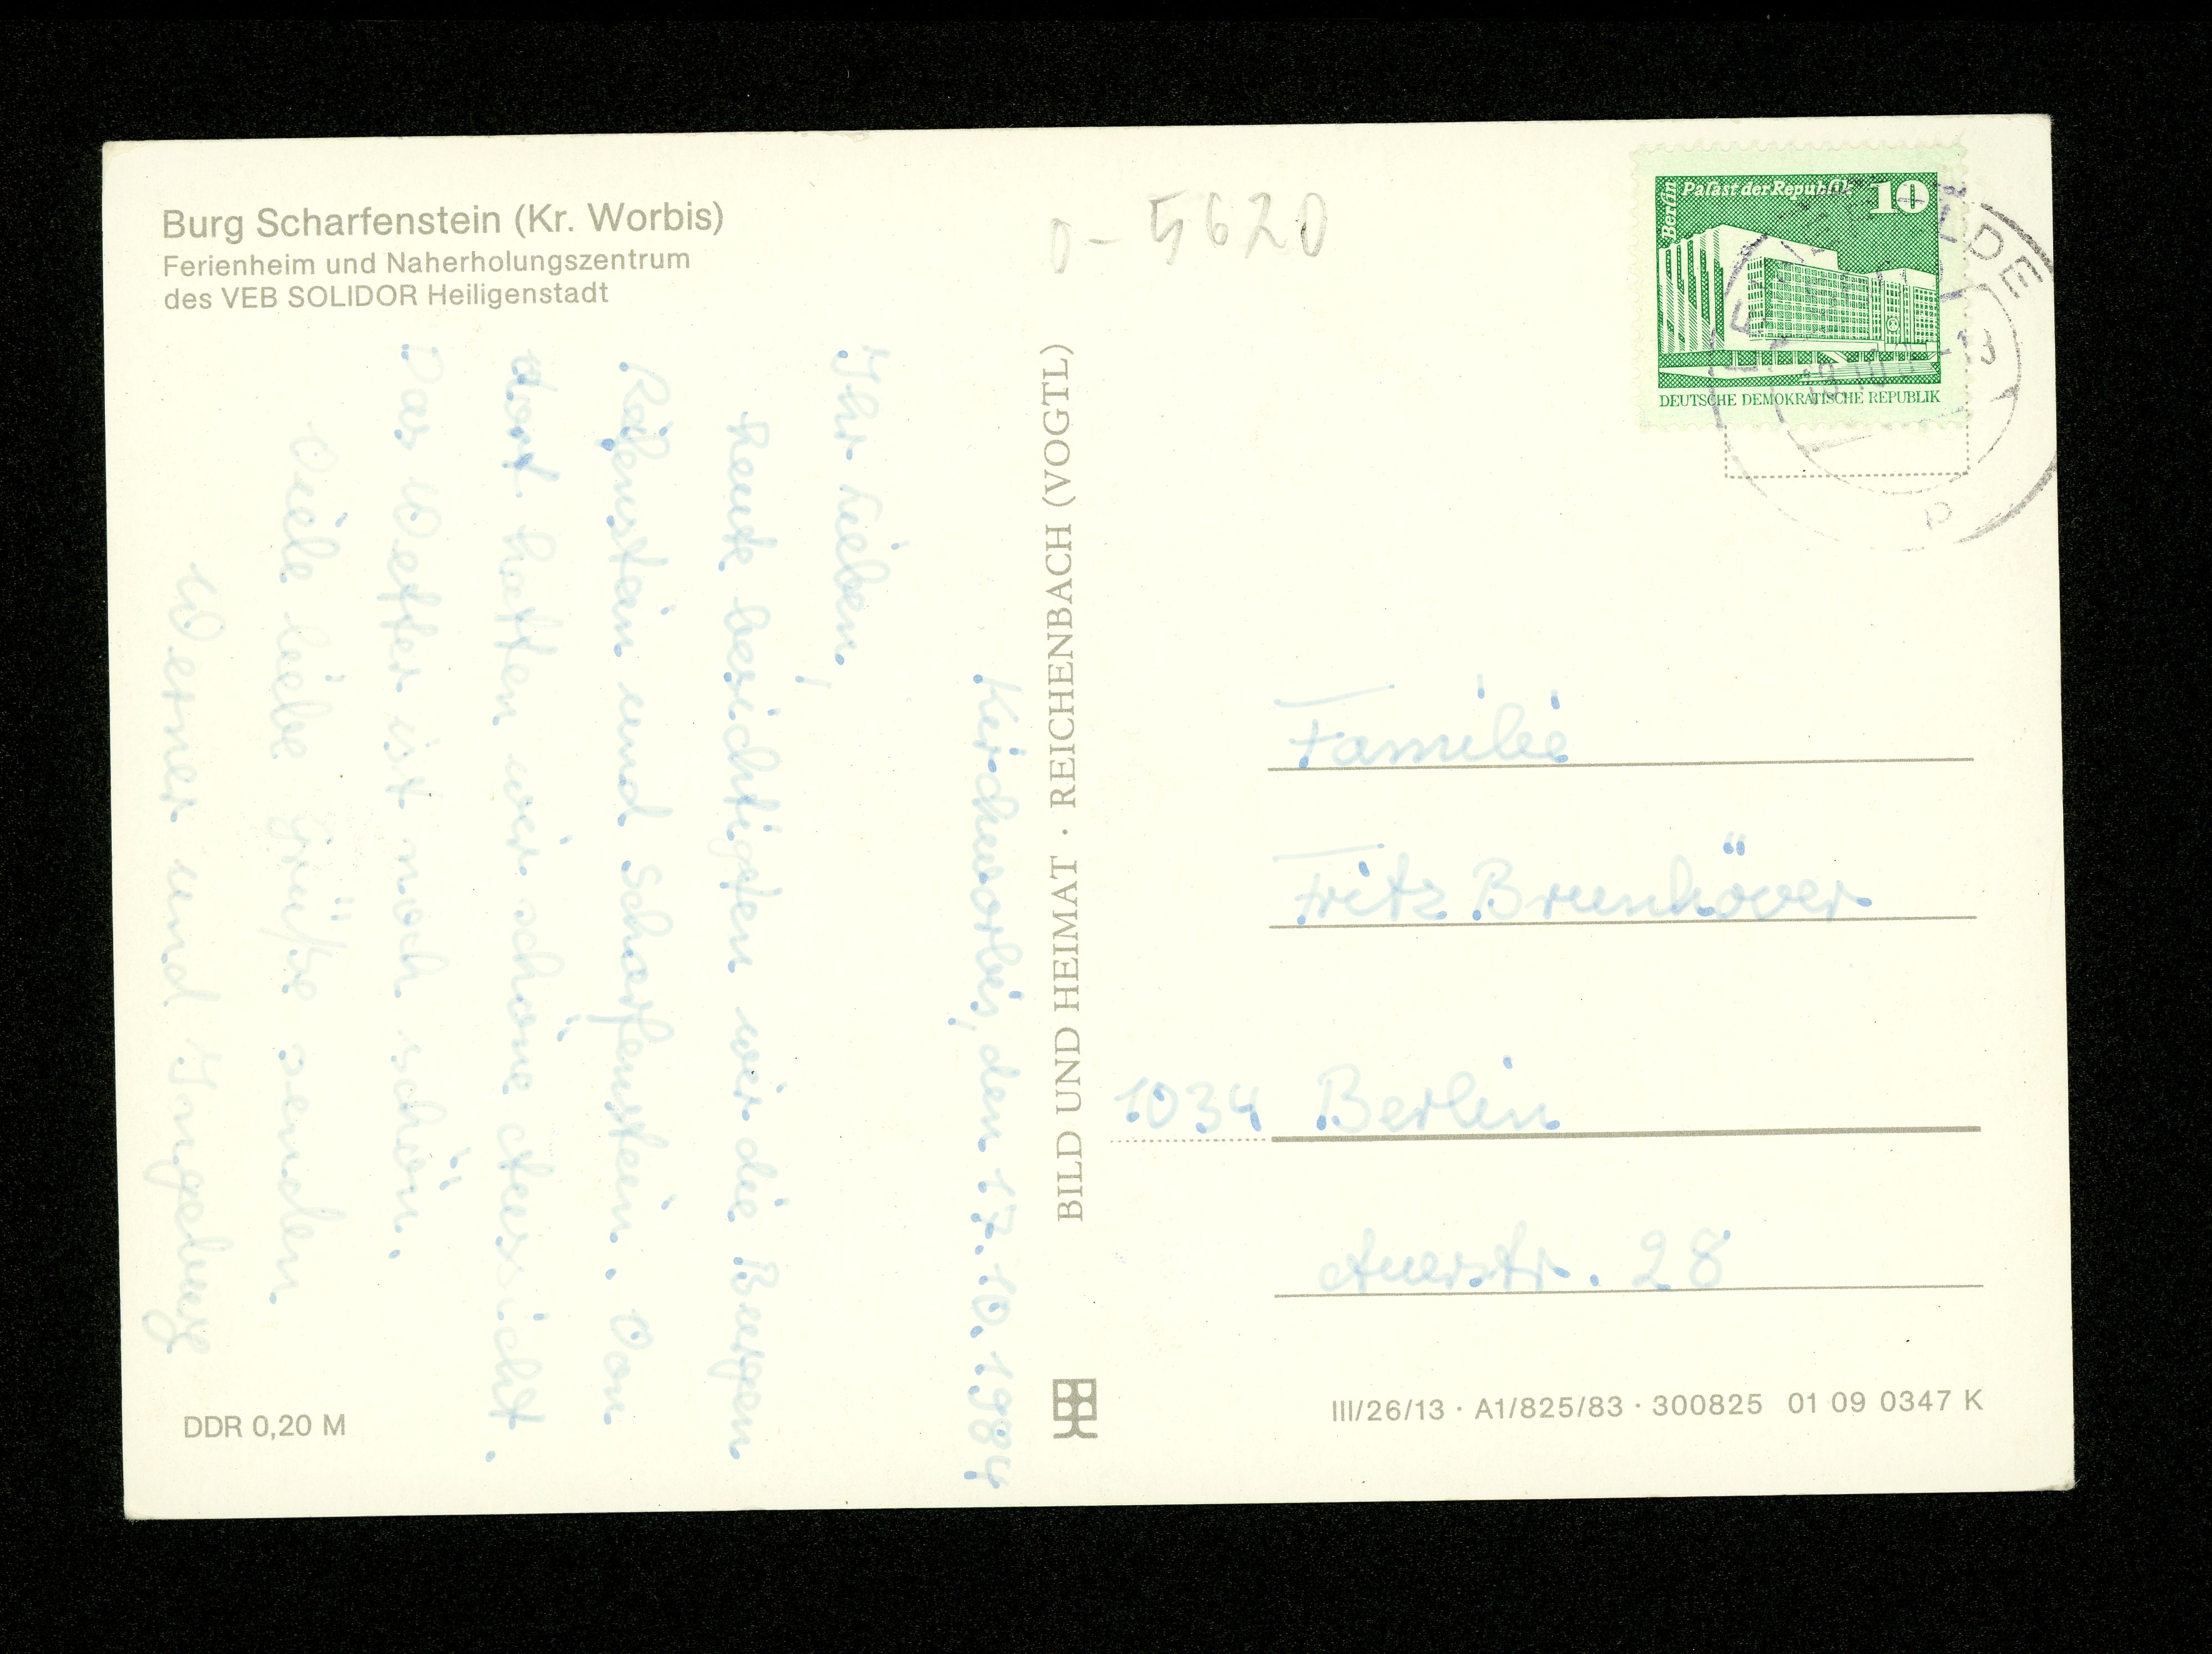 Burg Scharfenstein (Kr. Worbis)
Ferienheim und Naherholungszentrum
des VEB SOLIDOR Heiligenstadt
Kirchworbis, den 17.10.1984
Ihr Lieben,
heute besichtigten wir die Burgen
Scharfenstein. Von
dort hatten wir schöne Aussicht.
Das Wetter ist noch schön.
Viele liebe Grüße senden
Werner und Ingeburg
DDR 0,20 M
BILD UND HEIMAT · REICHENBACH (VOGTL)
0-5620
Berlin
Palast der Republik 10
DEUTSCHE DEMOKRATISCHE REPUBLIK
Familie
Fritz Brunhöver
1034 Berlin
Auerstr. 28
III/26/13 · A1/825/83 · 300825 01 09 0347 K